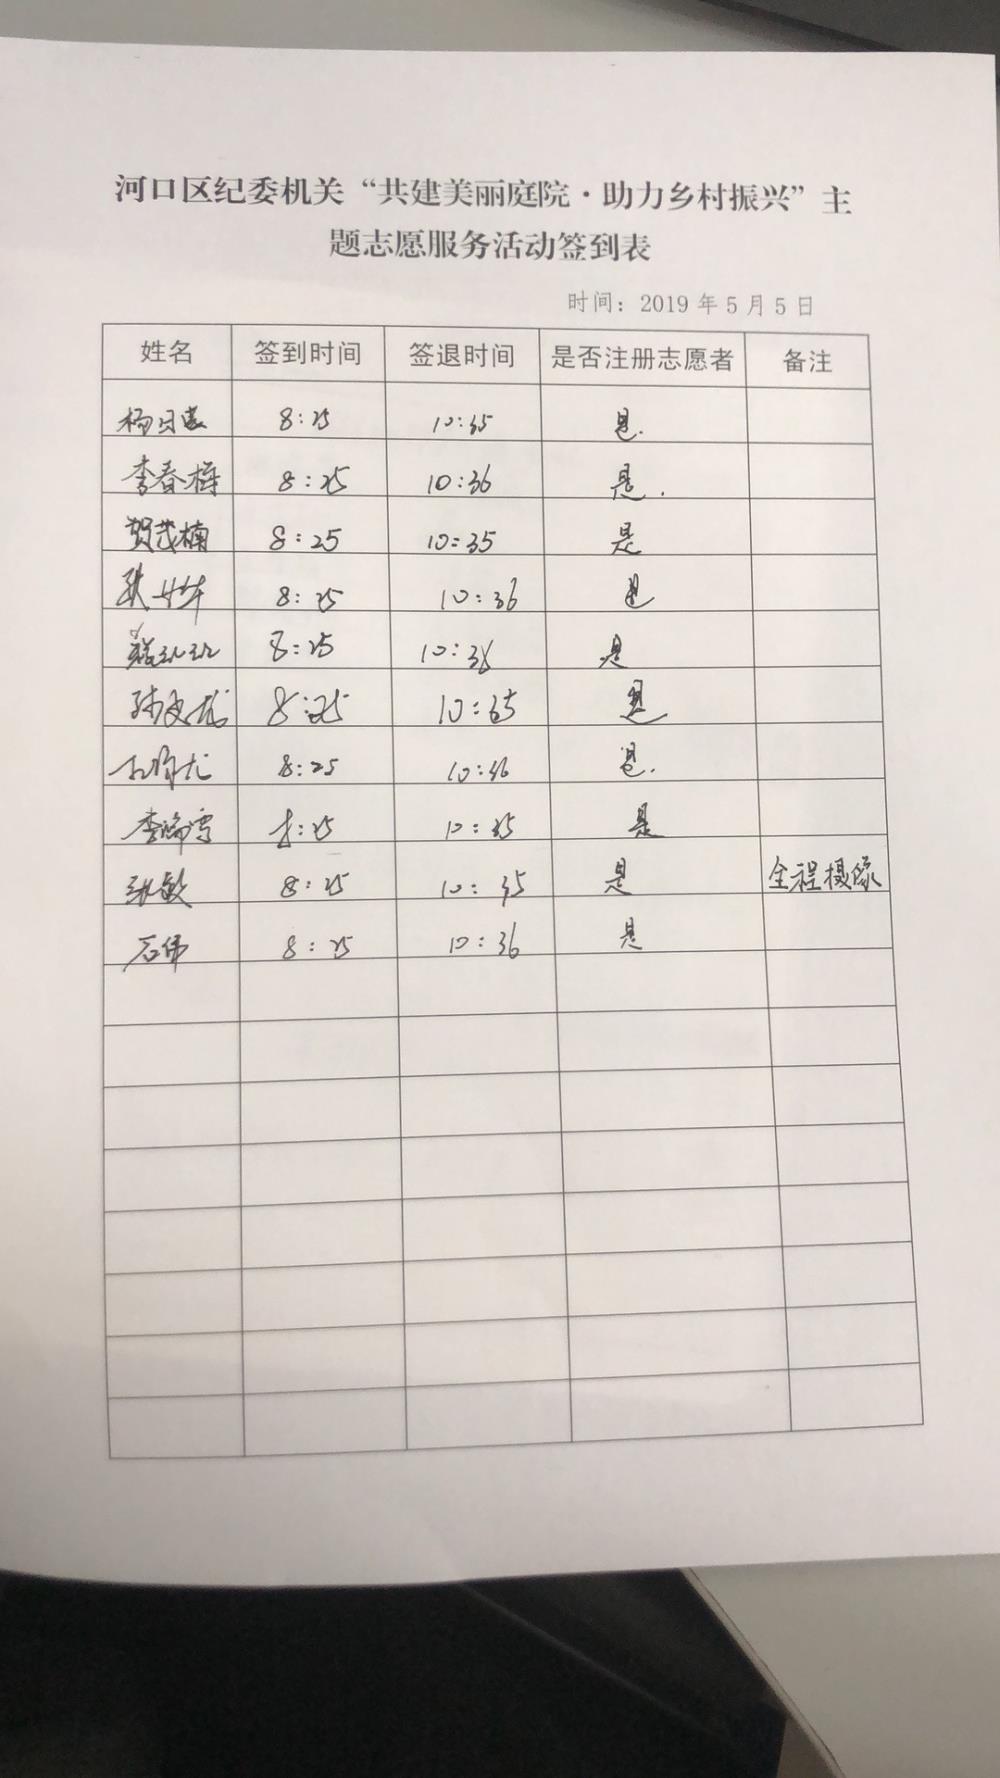 河口区纪委机关“共建美丽庭院·助力乡村振兴”主
题志愿服务活动签到表
时间：2019年5月5日
姓名 签到时间 签退时间 是否注册志愿者 备注
8:25 10:35 是.
李春梅 8:25 10:36 是.
贺茂楠 8:25 10:35 是
8:25 10:36 是
8:25 10:36 是
8:25 10:35 是
8:25 10:36 是.
8:25 10:35 是
张敏 8:25 10:35 是 全程摄像
石伟 8:25 10:36 是